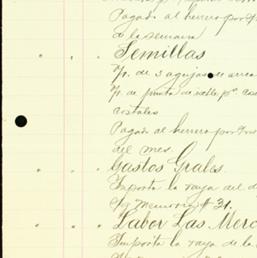 Pagado al herrero por
de la semana
Semillas
de 3 agujas de arrea
de punta de valle pa cos
costales
Pagado al herrero por
del mes.
Gastos Grales.
Importa la raya del d
Sg Memoria # 31.
Labor Las Merc
Importa la raya de la